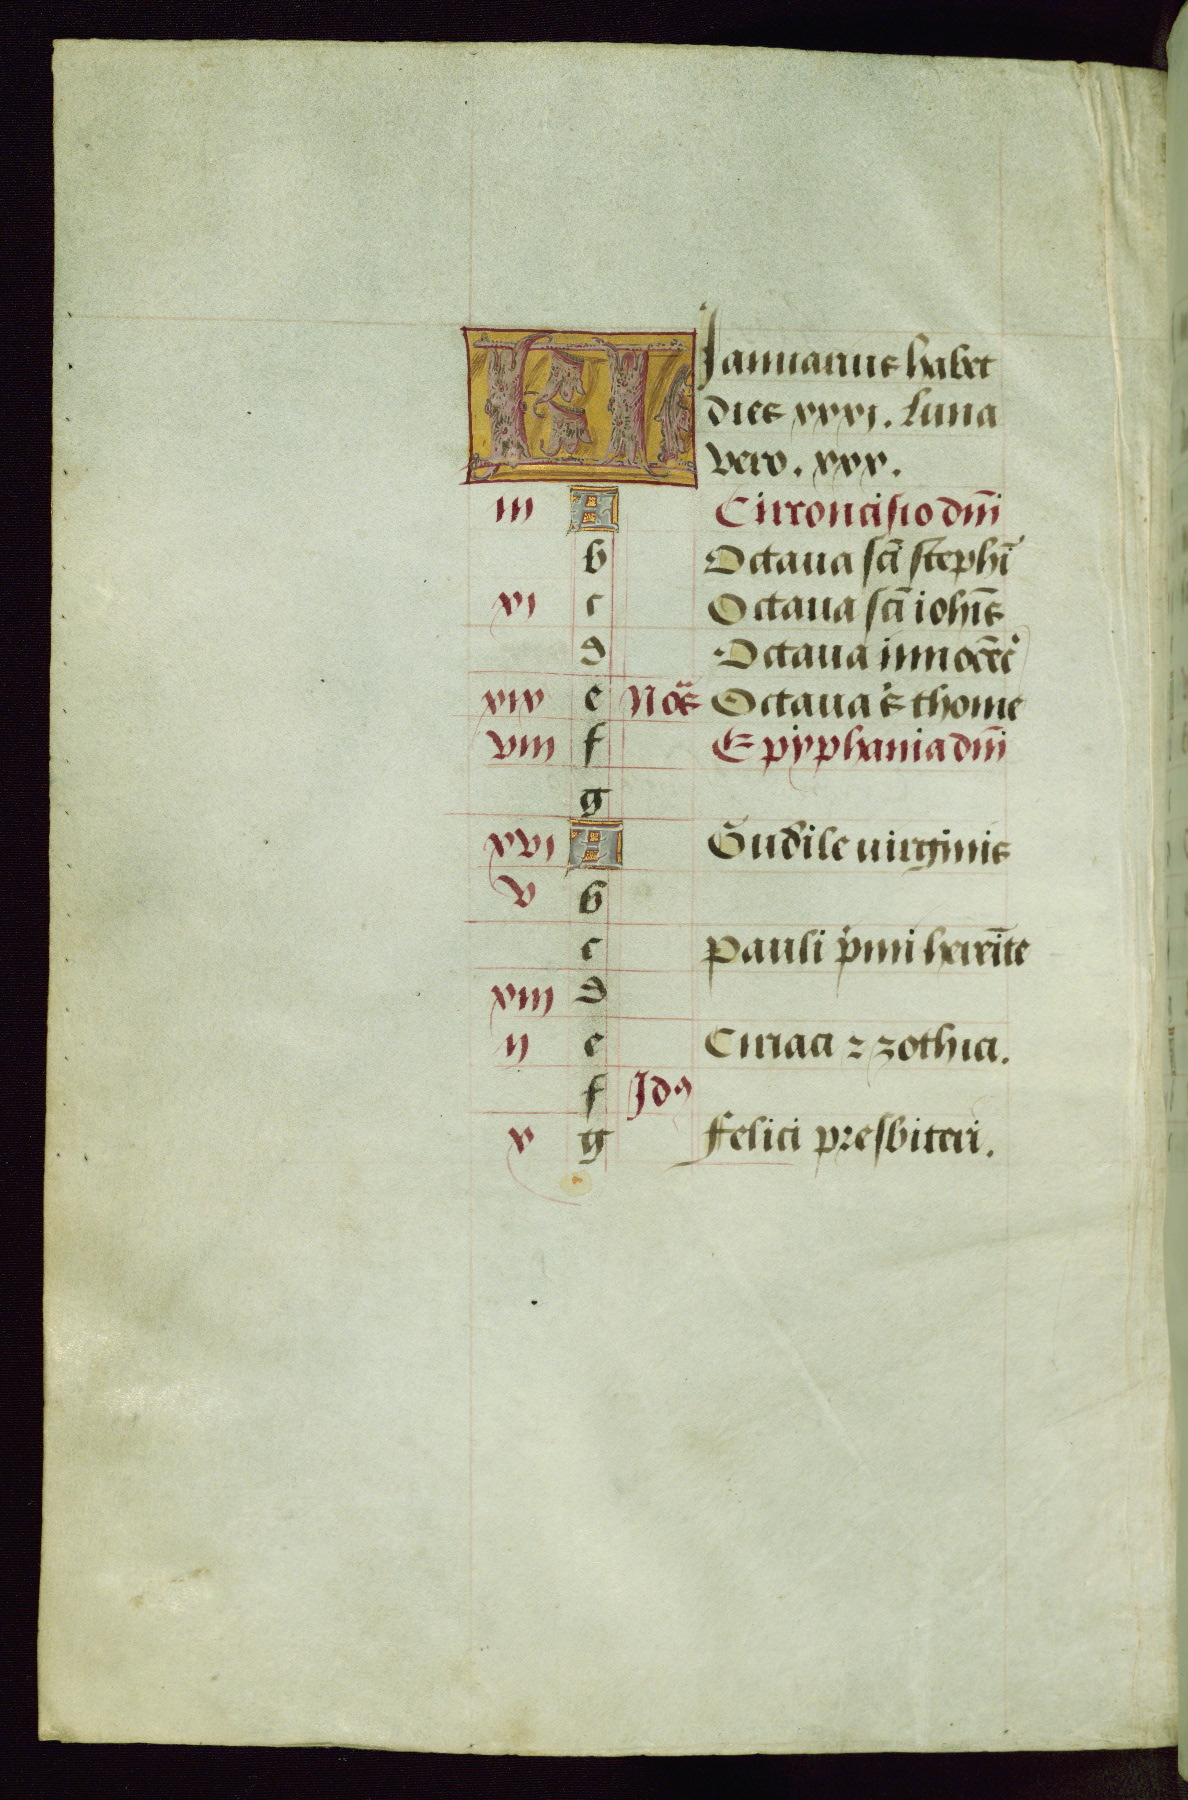 KL Januarius habet
dies xxxi. Luna
vero. xxx.
iii A Circoncisio dn̄i
b Octaua sc̄i steph̄i
xi c Octaua sc̄i ioh̄is
d Octaua innocē
xix e No᷎s Octaua s̄ thome
viii f Epyphania dn̄i
g
xvi A Gudile uirginis
v b
c Pauli p̄mi herēite
xiii d
ii e Ciriaci ⁊ zothici.
f Idꝰ
x g Felici presbiteri.